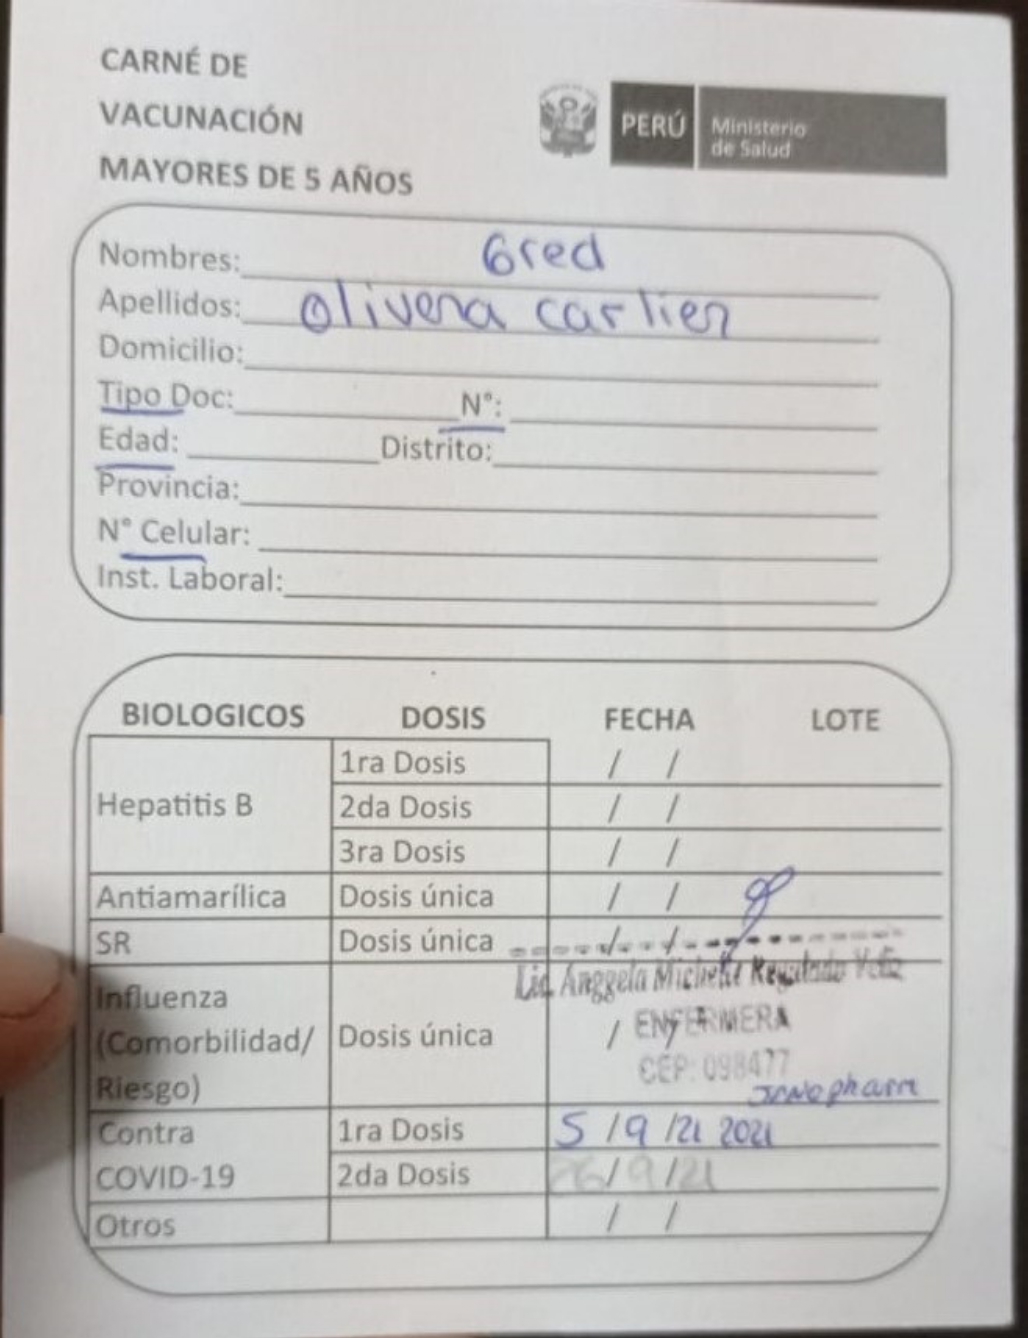 CARNÉ DE
VACUNACIÓN
MAYORES DE 5 AÑOS
PERÚ Ministerio
de Salud
Nombres: Gred
Apellidos: Olivera carlier
Domicilio:
Tipo Doc: N°:
Edad: Distrito:
Provincia:
N° Celular:
Inst. Laboral:
BIOLOGICOS DOSIS FECHA LOTE
Hepatitis B
1ra Dosis / /
2da Dosis / /
3ra Dosis / /
Antiamarílica Dosis única / /
SR Dosis única / /
Lic. Anggela Michelle
Influenza
(Comorbilidad/
Riesgo)
Dosis única /
ENFERMERA
CEP: 098477
Contra
COVID-19
1ra Dosis 5 /9 /21 2021
2da Dosis 26/9/21
Otros / /